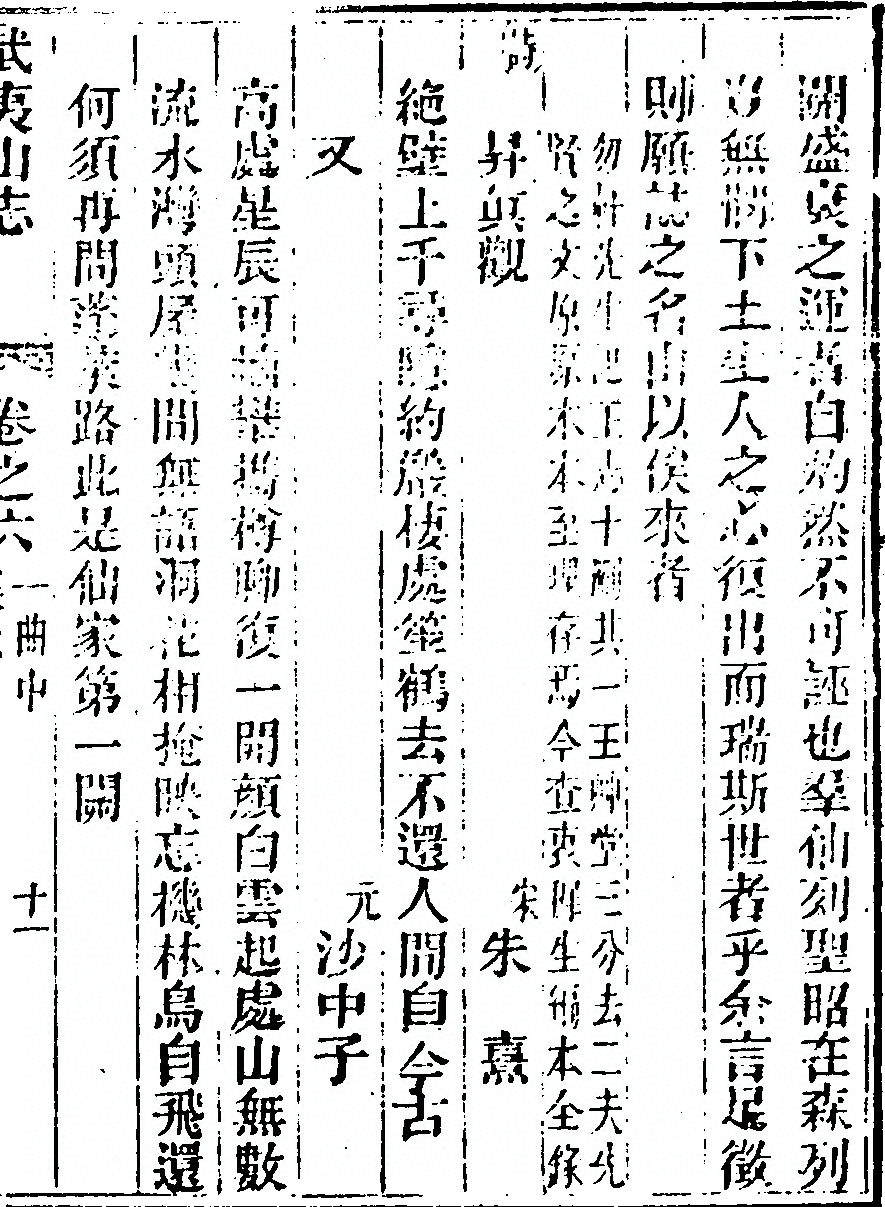 關盛衰之運者自灼然不可誣也羣仙列聖昭在森列
豈無憫下土生人之心復出而瑞斯世者乎余言足徵
則願誌之名山以俟來者
勿軒先生記王志十刪其一王卿堂三分去二夫先
賢之文原原本本至理存焉今查衷穉生舊本全錄
詩
昇真觀 宋 朱熹
絶壁上千尋隱約巖棲處笙鶴去不還人間自今古
又 元 沙中子
高處星辰可摘攜樽聊復一開顏白雲起處山無數
流水灣頭屋間無語洞花相掩映忘機林鳥自飛還
何須再問蓬萊路此是仙家第一關
武夷山志 卷之六 一曲中 十一